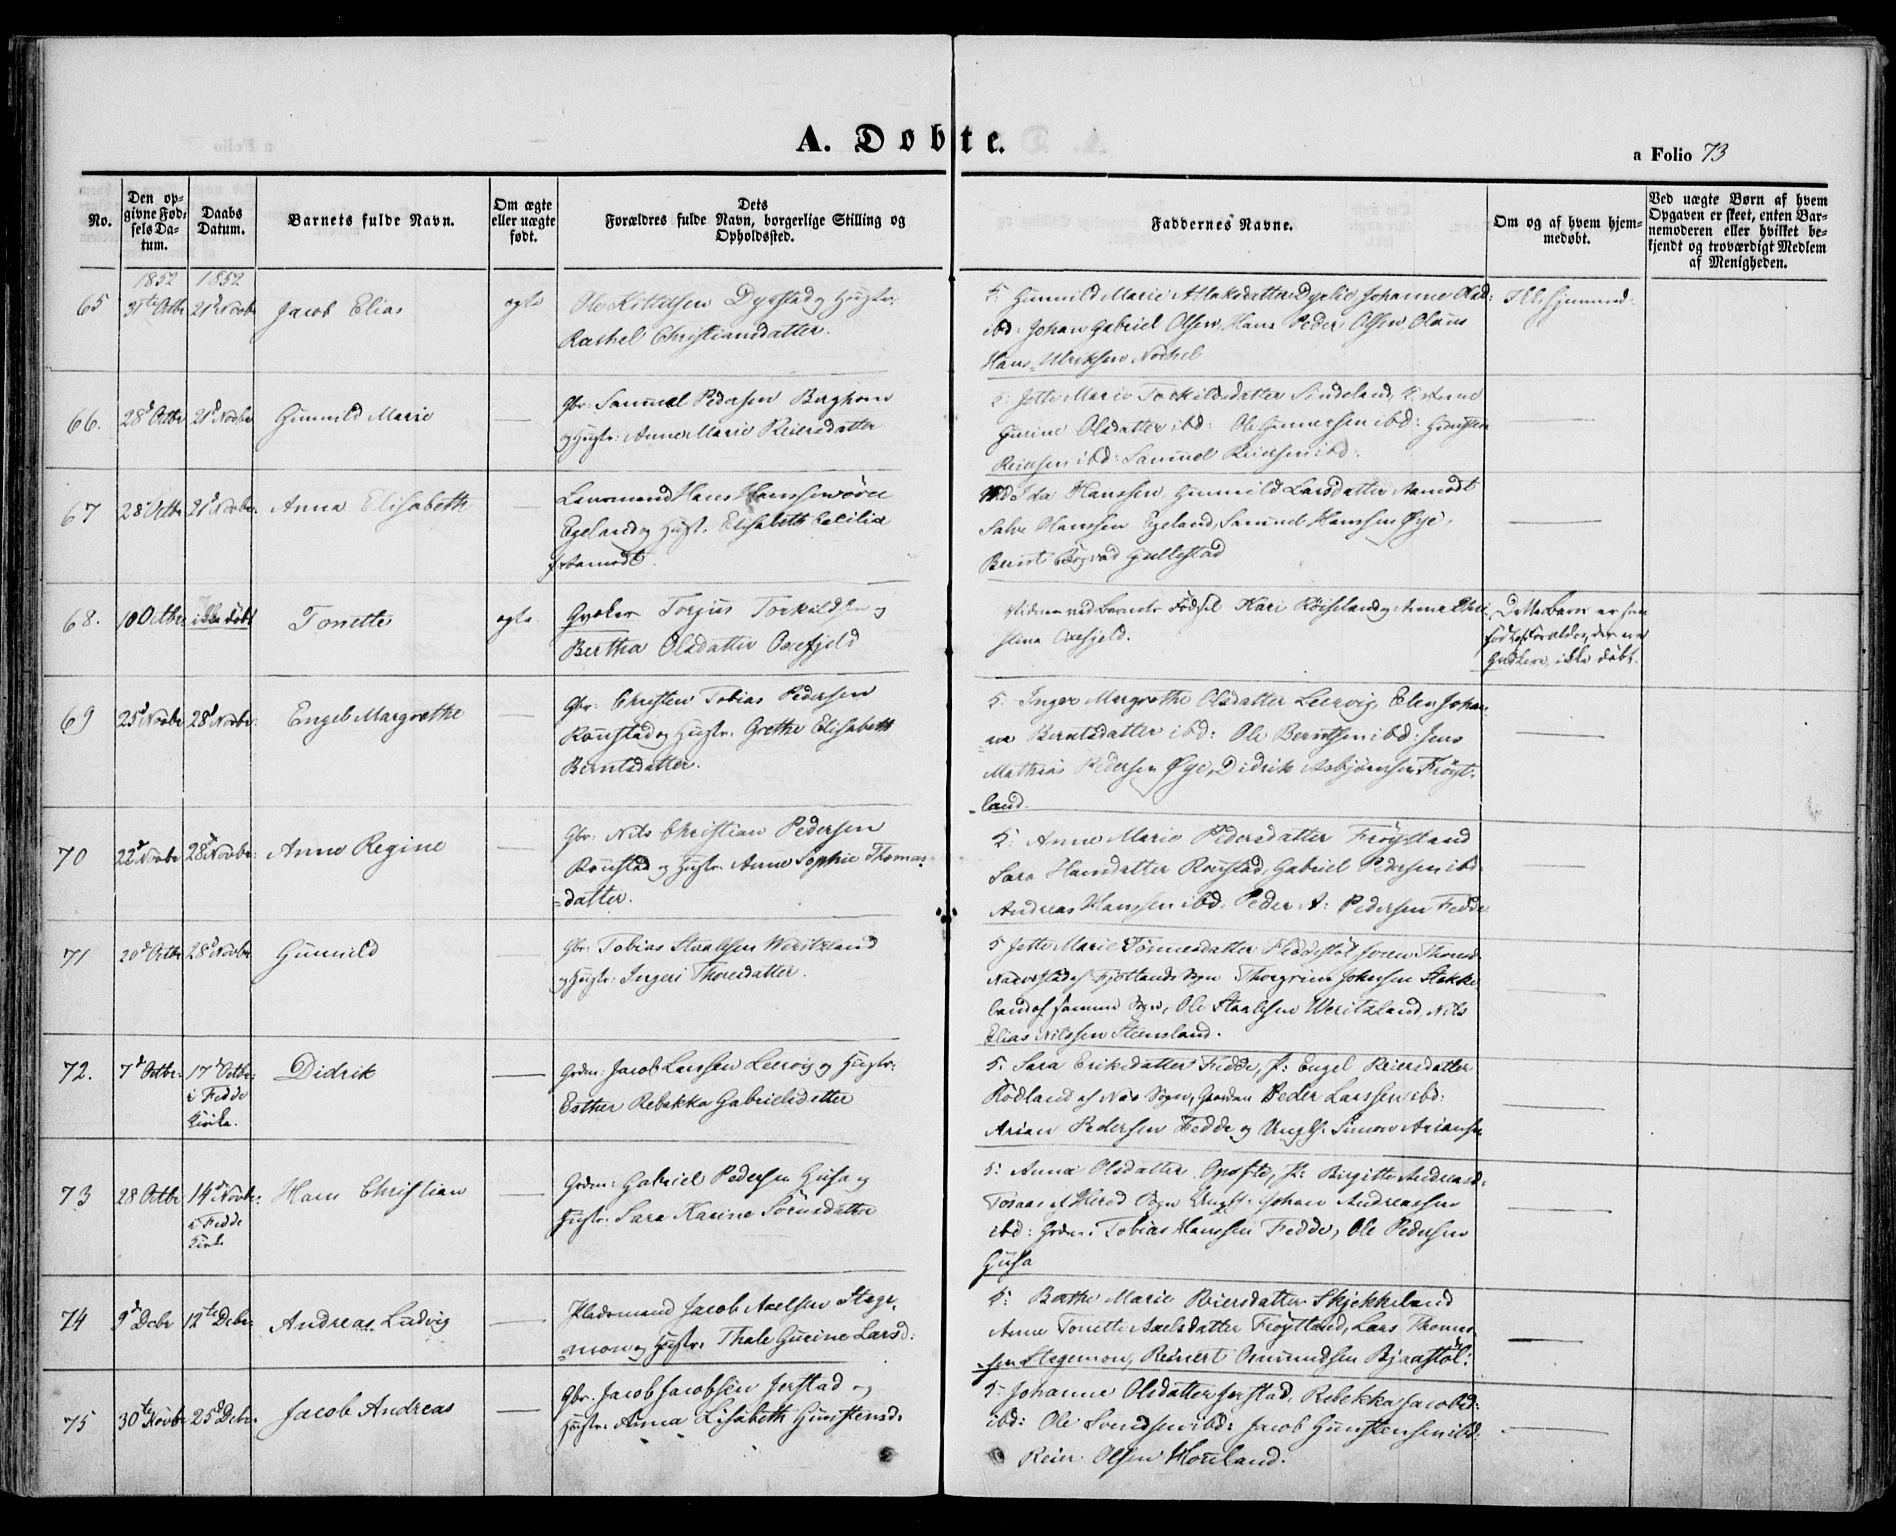 A. Døbte.
a Folio 73
No.
Den opgivne Fødselsdatum.
Daabs Datum.
Barnets fulde Navn.
Om ægte eller uægte født.
Dets Forældres fulde Navn, borgerlige Stilling og Opholdssted.
Faddernes Navne.
Om og af hvem hjemmedøbt.
Ved uægte Børn af hvem Opgaven er skeet, enten Barnemoderen eller hvilket bekjendt og troværdigt Medlem af Menigheden.
1852 1852
65 31te Octbr 21d Novbr Jacob Elias ægte
Ole Kittelsen Dyrstad og Hustr:
Rachel Christiansdatter.
5: Gunnild Marie Aslaksdatter Dyrlie, Johanne Olsd:
ibd: Johan Gabriel Olsen, Hans Peder Olsen
Hans Ulriksen
66. 28d Octbr 21d Novbr Gunnild Marie
Gbr: Samuel Pedersen Berghom
og Hustr: Anne Marie Reiersdatter
5: Jette Marie Torkildsdatter Sindeland, P: Anne
Gurine Olsdatter ibd: Ole Gunnersen ibd: Gunsten
Reiersen ibd: Samuel Reiersen ibd:
67 28d Octbr 21d Novbr. Anna Elisabeth
Lensmand Hans Hanssen
Egeland og Hust: Elisabeth Cecilia
f. Aamodt.
Ida Hanssen, Gunnild Larsdatter Aamodt
Salve Hanssen Egeland, Samuel Hanssen Øye,
Bernt Gullestad
68. 10 Octbr ikke døbt Tonette ægte
Qvæker Torjus Torkildsen og
Bertha Olsdatter Oxefjeld
Vidner ved Barnets Fødsel Kari Røiseland og Anna Chri
stina Oxefjeld.
Dette Barn er som
født af Forældre, der ere
Qvækere, ikke døbt.
69 25d Novbr 28d Novbr. Engeb. Margrethe
Gbr: Christen Tobias Pedersen
Rønstad og Hustr. Grethe Elisabeth
Berntsdatter.
5: Inger Margrethe Olsdatter Leervig, Elen Johan-
ne Berntsdatter ibd: Ole Berntsen ibd: Jens
Mathias Pedersen Øye, Didrik Asbjørnsen Frøyt-
land.
70 22d Novbr 28d Novbr: Anne Regine
Gbr: Nils Christian Pedersen
Rønstad og Hustr. Anne Sophie Thomas-
datter.
5: Anne Marie Pedersdatter Frøytland
Sara Hansdatter Rønstad, Gabriel Pedersen ibd:
Andreas Hanssen ibd: Peder A: Pedersen Fedde
71 20d Octbr 28d Novbr Gunnild
Gbr: Tobias Staalesen Weritzland
og Hustr: Ingeri Thoresdatter.
5 Jette Marie Tønnesdatter Feddestøl, Soren
af Fjotlands Sogn Thorgrim Johnsen Stakke
land af samme Sogn, Ole Staalesen Weritzland, Nils
Elias Nilssen Steensland.
72. 7d Octbr: 17d Octbr: i Fedde Kirke. Didrik
Grdm: Jacob Larssen Leervig og Hustr:
Esther Rebekka Gabrielsdatter
5: Sara Eriksdatter Fedde, P: Engel Reiersdatter
Rødland af Næs Sogn, Peder Larssen ibd:
Arian Pedersen Fedde og Ungk: Simon Ariansen
73 28 Octbr 14d Novbr: i Fedde Kirke Hans Christian
Grdm: Gabriel Pedersen Gusa og
Hustr: Sara Karine Sørensdatter
5: Anna Olsdatter Opofte, P: Birgitte Andreasd:
Tosaas af Herod Sogn Ungk: Johan Andreassen
ibd: Grdm: Tobias Hanssen Fedde, Ole Pedersen
Gusa
74 9d Debr 12te Debr: Andreas Ludvig
Pladsmand Jacob Axelsen Stage-
mon og Hustr. Thale Gurine Larsd:
5: Berthe Marie Reiersdatter Skjekkeland
Anne Tonette Axelsdatter Frøytland, Lars Thomas-
sen Stagemon, Reinert Omundsen Bjaastøl:
75 30te Novbr 25d Debr. Jacob Andreas
Gbr. Jacob Jacobsen Jerstad og
Hustr. Anna Lisabeth Gunstensd:
5: Johanne Olsdatter Jerstad, Rebekka Jacobsd:
ibd: Ole Svendsen ibd: Jacob Gunstensen ibd:
Reier Olsen Houeland.